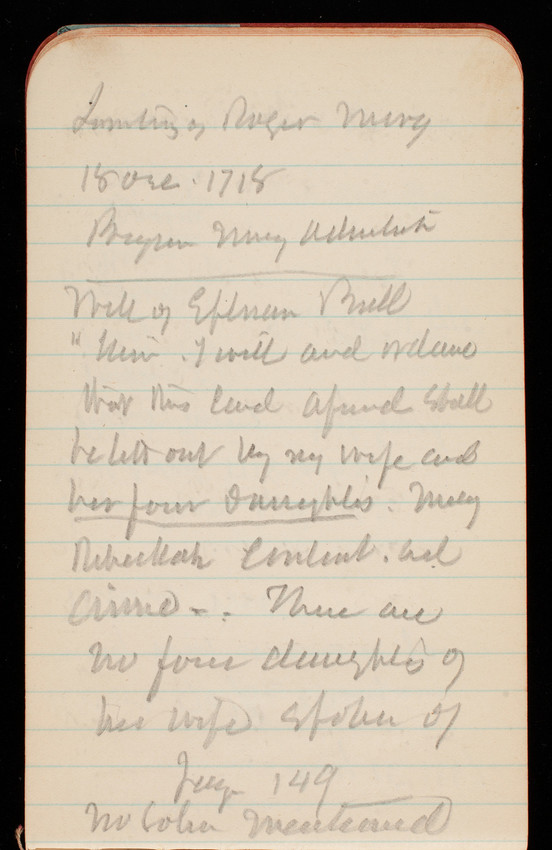 of Roger Mory
18 Dec. 1718
Mory
Will of Ephraim
"Item. I will and ordane
that this land afored shall
be lett out by my wife and
her four daughters. Mary
Rebeckah Content. and
There are
no four daughters of
his wife spoken of
Page 149
No John mentioned